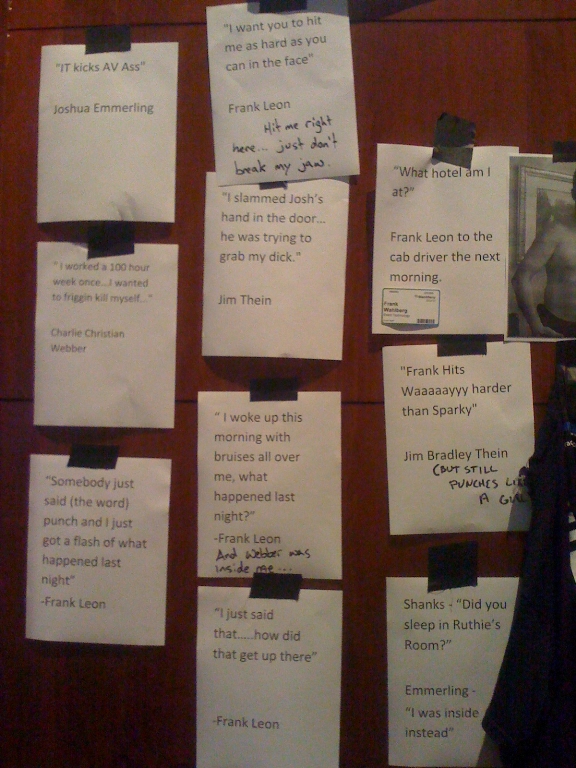 "IT kicks AV Ass"
Joshua Emmerling
"I worked a 100 hour
week once...I wanted
to friggin kill myself..."
Charlie Christian
Webber
"Somebody just
said (the word)
punch and I just
got a flash of what
happened last
night"
-Frank Leon
"I want you to hit
me as hard as you
can in the face"
Frank Leon
Hit me right
here... just don't
break my jaw.
"I slammed Josh's
hand in the door...
he was trying to
grab my dick."
Jim Thein
" I woke up this
morning with
bruises all over
me, what
happened last
night?"
-Frank Leon
And Webber was
inside me...
"I just said
that.....how did
that get up there"
-Frank Leon
"What hotel am I
at?"
Frank Leon to the
cab driver the next
morning.
Frank
Wahlberg
"Frank Hits
Waaaaayyy harder
than Sparky"
Jim Bradley Thein
(BUT STILL
PUNCHES
A
Shanks - "Did you
sleep in Ruthie's
Room?"
Emmerling -
"I was inside
instead"